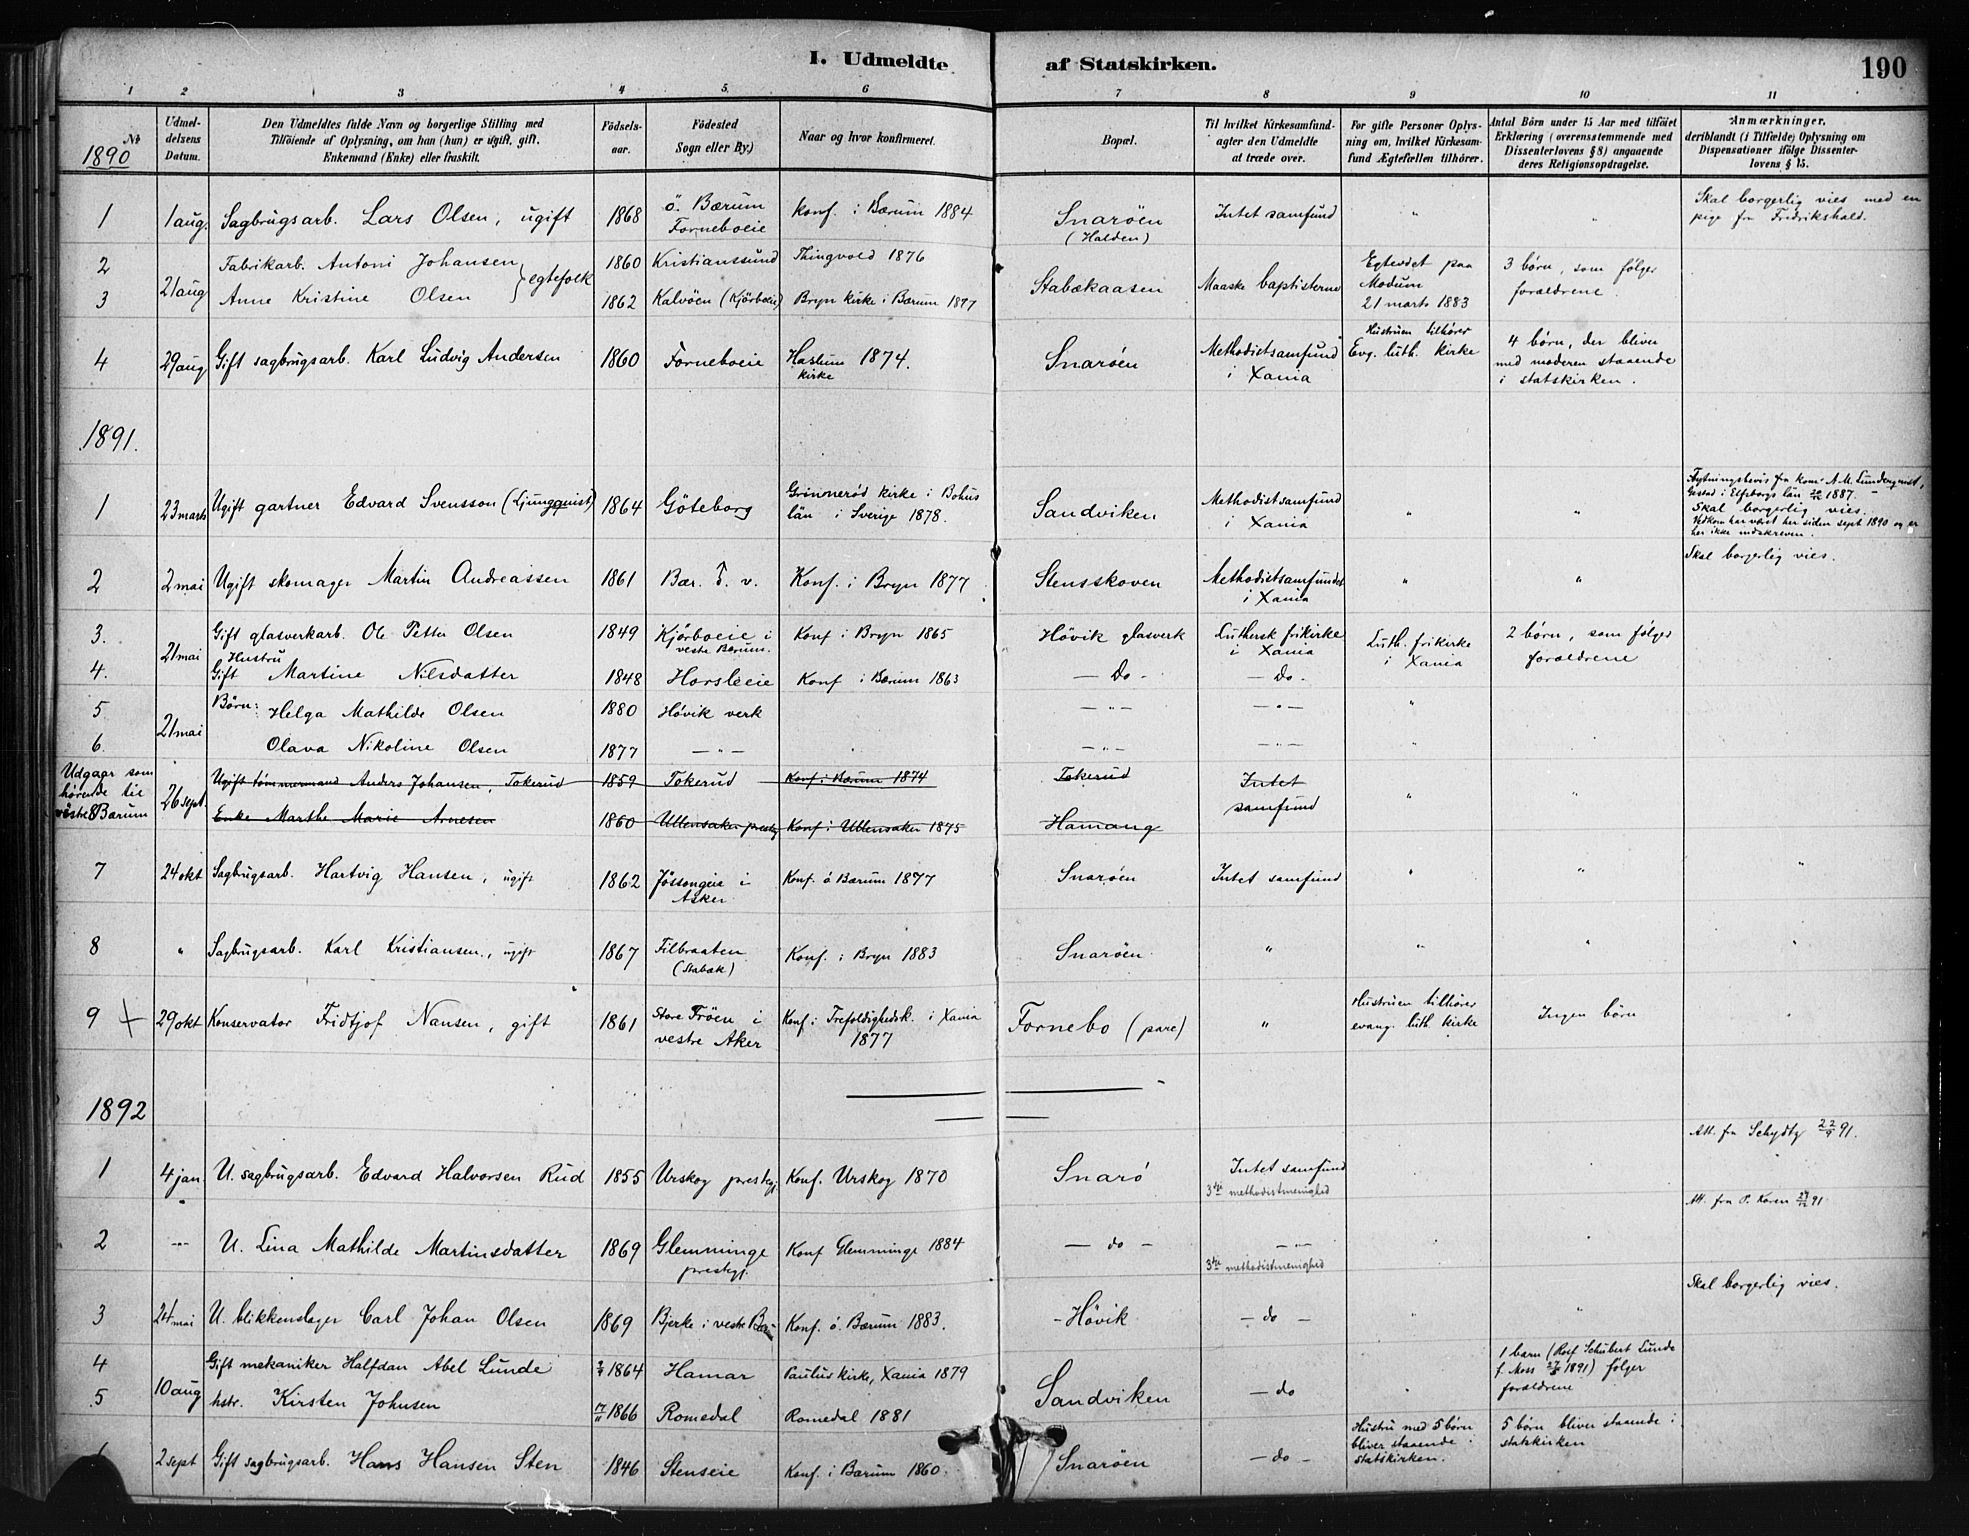 I. Udmeldte af Statskirken. 190
1 2 3 4 5. 6 7 8 9 10 11
No
1890
Udmel-
delsens
Datum.
Den Udmeldtes fulde Navn og borgerlige Stilling med
Tilföiende af Oplysning, om han (hun) er ugift, gift,
Enkemand (Enke) eller fraskilt.
Födsels-
aar.
Födested
Sogn eller By.)
Naar og hvor konfirmeret.
Bopæl.
Til hvilket Kirkesamfund-
agter den Udmeldte
at træde over.
For gifte Personer Oplys-
ning om, hvilket Kirkesam-
fund Ægtefællen tilhörer.
Antal Börn under 15 Aar med tilföiet
Erklæring (overensstemmende med
Dissenterlovens § 8) angaaende
deres Religionsopdragelse.
Anmærkninger,
deriblandt (i Tilfælde) Oplysning om
Dispensationer ifölge Dissenter-
lovens § 15.
1 1 aug. Sagbrugsarb. Lars Olsen, ugift 1868 ö. Bærum Forneboeie Konf. i Bærum 1884 Snarøen (Halden) Intet samfund " " Skal borgerlig vies med en
pige fra Fredrikshald.
2 21 aug Fabrikarb. Antoni Johansen } egtefolk 1860 Kristianssund Thingvold 1876 Stabækaasen Maaske baptisterne Egteviet paa Modum 21 marts 1883 3 børn, som følger
forældrene.
3 Anne Kristine Olsen 1862 Kalvöen (Kjörboeie) Bryn kirke i Bærum 1877
4 29 aug Gift sagbrugsarb. Karl Ludvig Andersen 1860 Forneboeie Haslum kirke 1874. Snarøen Methodistsamfund i Xania Hustruen tilhører Evg. luth. kirke 4 børn, der bliver
med moderen staaende
i statskirken.
1891.
1 23 marts Ugift gartner Edvard Svensson (Ljungquist) 1864 Göteborg Grinnerød kirke i Bohus
län i Sverige 1878. Sandviken Methodistsamfund i Xania " " Flytningsbevis fra kom. A. M. Lundenquist,
Gestad i Elfsborgs län 1887.
Skal borgerlig vies.
Vedkom. har været her siden sept 1890 og er
her ikke indskreven.
2 2 mai Ugift skomager Martin Andreassen 1861 Bær. v. Konf. i Bryn 1877 Stensskoven Methodistsamfundet i Xania " " Skal borgerlig vies.
3. 21 mai Gift glasverkarb. Ole Petter Olsen 1849 Kjörboeie i
vestre Bærum. Konf i Bryn 1865 Hövik glasverk Luthersk frikirke i Xania Luth. frikirke i Xania 2 børn, som følger
forældrene
4. Hustru
Gift Martine Nilsdatter 1848 Horsleeie Konf i Bærum 1863 – Do – – Do –
5 21 mai Børn: Helga Mathilde Olsen 1880 Hövik verk – " – – " – "
6 Olava Nikoline Olsen 1877 – " – – " – – " – "
Udgaar som
hørende til
vestre Bærum
26 sept. Ugift tømmermand Anders Johansen, Tokerud 1859 Tokerud Konf. i Bærum 1874 Tokerud Intet samfund " "
8 Enke Marthe Marie Arnesen 1860 Ullensaker prestg Konf. i Ullensaker 1875 Hamang
7 24 okt Sagbrugsarb. Hartvig Hansen, ugift 1862 i Asker Konf. ö Bærum 1877 Snarøen Intet samfund " " "
8 " Sagbrugsarb. Karl Kristiansen, ugift 1867 Filbraaten
(Stabæk) Konf. i Bryn 1883 Snarøen " " " "
9 + 29 okt Konservator Fridtjof Nansen, gift 1861 Store Frøen i
vestre Aker Konf. i Trefoldighedsk. i Xania
1877 Fornebo (parc) " Hustruen tilhører
evang. luth. kirke Ingen børn "
1892
1 4 jan. U. sagbrugsarb. Edvard Halvorsen Rud 1855 Urskog prestgj. Konf. Urskog 1870 Snarö Intet samfund
3die methodistmenighed Att. fra Schydtz 22/9 91.
2 – " – U. Lina Mathilde Martinsdatter 1869 Glemminge
prestgj. Konf Glemminge 1884 – do – – " –
3die methodistmenighed Att. fra P. Koren 91
3 24 mai U. blikkenslager Carl Johan Olsen 1869 Bjerke i vestre Bær. Konf. ö. Bærum 1883. – Hövik – do – " " Skal borgerlig vies.
4 10 aug Gift mekaniker Halfdan Abel Lunde 1864 Hamar Paulus kirke, Xania 1879 Sandviken – do " 1 barn (Rolf Schubert Lunde
f. Moss 1891) følger
forældrene
5 hstr. Kirsten Johnsen 17/11 1866 Romedal Romedal 1881
6 2 sept Gift sagbrugsarb. Hans Hansen Sten 1846 Stenseie Konf. i Bærum 1860. Snarøen – do – Hustru med 5 børn
bliver staaende i
statskirken. 5 børn bliver staaende i
statskirken